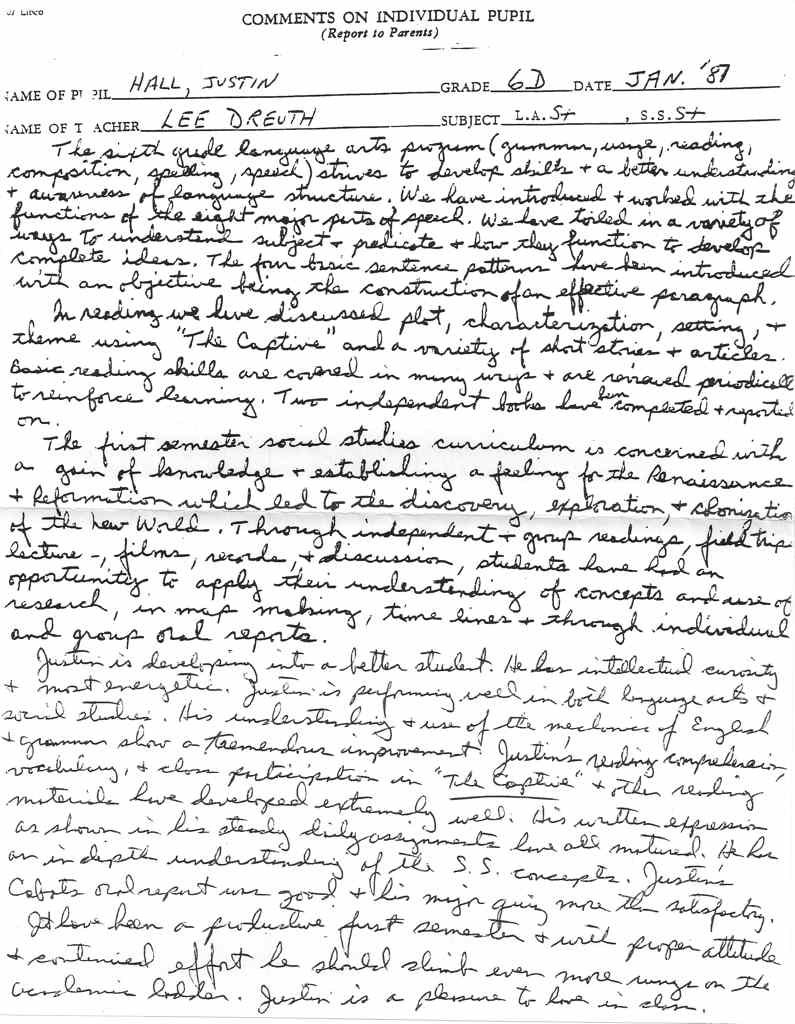 COMMENTS ON INDIVIDUAL PUPIL
(Report to Parents)
NAME OF PUPIL HALL, JUSTIN GRADE 6D DATE JAN. '87
NAME OF TEACHER LEE DREUTH SUBJECT L.A. S+ , S.S. S+
The sixth grade language arts program (grammar, usage, reading,
composition, spelling, speech) strives to develop skills + a better understanding
+ awareness of language structure. We have introduced + worked with the
functions of the eight major parts of speech. We have toiled in a variety of
ways to understand subject + predicate + how they function to develop
complete ideas. The four basic sentence patterns have been introduced
with an objective being the construction of an effective paragraph.
In reading we have discussed plot, characterization, setting, +
theme using "The Captive" and a variety of short stories + articles.
Basic reading skills are covered in many ways + are reviewed periodicall
to reinforce learning. Two independent books have been completed + reported
on.
The first semester social studies curriculum is concerned with
a gain of knowledge + establishing a feeling for the Renaissance
+ Reformation which led to the discovery, exploration, + colonizatio
of the New World. Through independent + group readings, field trip
lecture -, films, records, + discussion, students have had an
opportunity to apply their understanding of concepts and use of
research, in map making, time lines + through individual
and group oral reports.
Justin is developing into a better student. He has intellectual curiosity
+ most energetic. Justin is performing well in both language arts +
social studies. His understanding + use of the mechanics of English
+ grammar show a tremendous improvement. Justin's reading comprehension,
vocabulary, + class participation in "The Captive" + other reading
materials have developed extremely well. His written expression
as shown in his steady daily assignments have all matured. He has
an in depth understanding of the S.S. concepts. Justin's
Cabots oral report was good + his major quiz more than satisfactory.
It have been a productive first semester + with proper attitude
+ continued effort he should climb even more rungs on the
academic ladder. Justin is a pleasure to have in class.